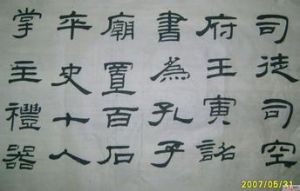 司徒司空
府壬寅詔
書為孔子
廟置百石
卒史十人
掌主禮器
2007/05/31